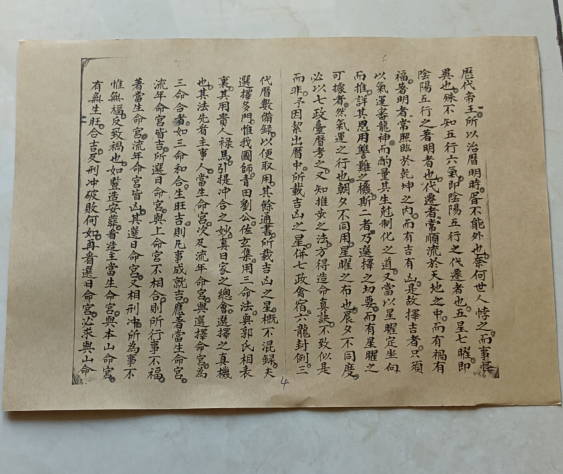 歷代帝王所以治曆明時皆不能外也奈何世人悖之而事怪
異也殊不知五行六氣即陰陽五行之代遷者也五星七曜即
陰陽五行之著明者也代遷者常順流於天地之中而有禍有
福著明者常照臨於乾坤之內而有吉有凶是故擇吉者只須
以氣運審龍神而酌量其生尅制化之道又當以星曜定坐向
而推詳其恩用讐難之權斯二者乃選擇之切要而有星曜之
可據者然氣運之行也朝夕不同用星曜之布也辰夕不同度
必以七政臺曆考之又知推變之法方得造命真訣不致似是
而非予因絜出曆中所載吉凶之星併七政會宿六龍封倒三
代曆數備錄以便取用其餘通書所載吉凶之星概不混録夫
選擇多門惟我國師青田劉公佐玄集用三命法與郭氏相表
裏其用貴人祿馬引提冲合之妙真日家之總會選擇之真機
也其法先看主事人當生命宮次及流年命宮與選擇命宮為
三命合者如三命和合生旺吉則凡事成就吉應若當生命宮
流年命宮皆吉所選日命宮與上命宮不相合則所行事不福
著當生命宮流年命宮皆凶其選日命宮又相刑冲所為事不
惟無福反致禍也如豎造安葬看造主當生命宮與本山命宮
有無生旺合吉及刑冲破敗何如再看選日命宮必來與山命
4